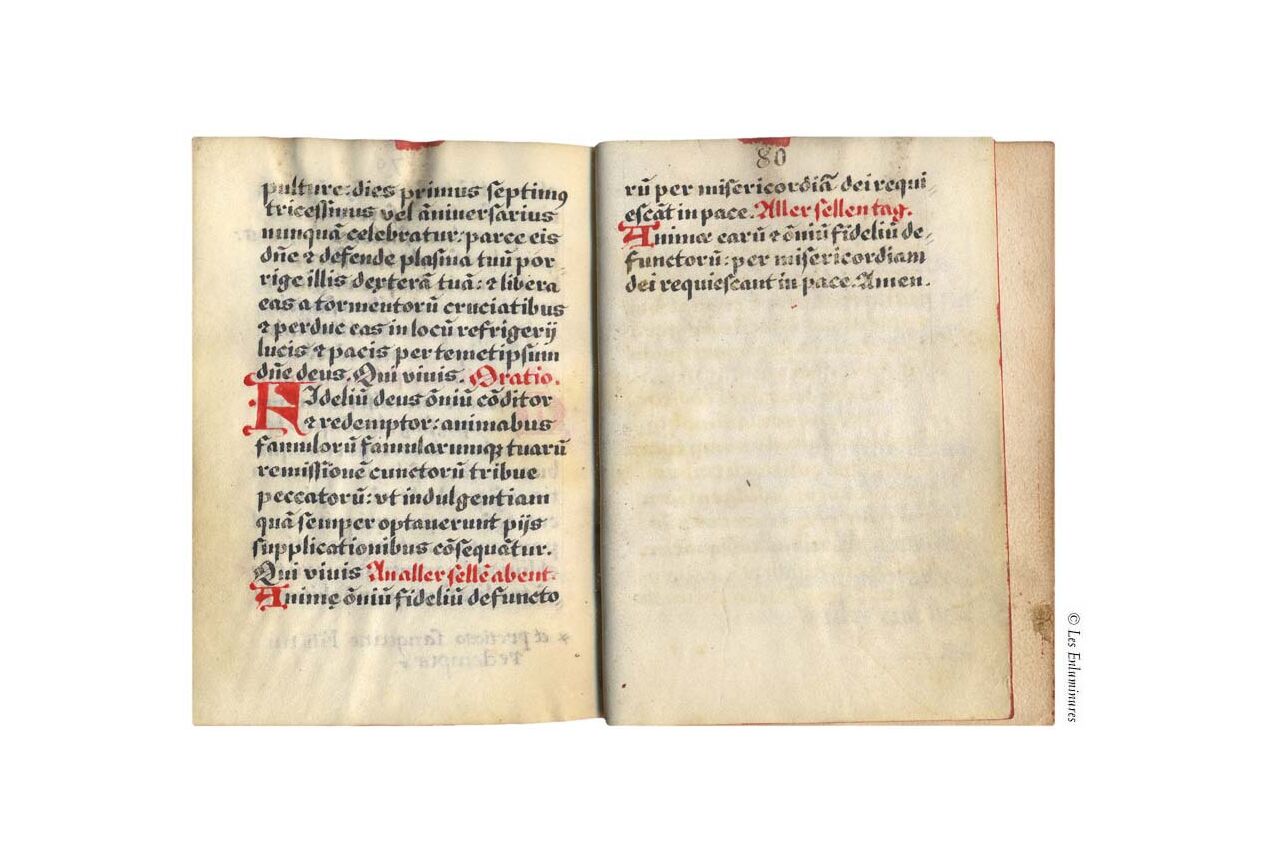 pulture: dies primus septimꝰ
tricessimus vel āniversarius
nunquā celebratur: parce eis
dn̄e & defende plasma tuū por
rige illis dexterā tuā: & libera
eas a tormentorū cruciatibus
& perduc eas in locū refrigerij
lucis & pacis per temetipsum
dn̄e deus. Qui vivis. Oratio.
FIdeliū deus ōniū cōditor
& redemptor: animabus
famulorū famularumqꝫ tuarū
remissionē cunctorū tribue
peccatorū: vt indulgentiam
quā semper optauerunt pijs
supplicationibus cōsequātur.
Qui viuis An aller sellē abent.
Animę ōniū fideliū defuncto
80
rū per misericordiā dei requi⸗
escāt in pace. Aller sellen tag.
Animæ earū & ōniū fideliū de⸗
functorū: per misericordiam
dei requiescant in pace. Amen.
© Les Enluminures